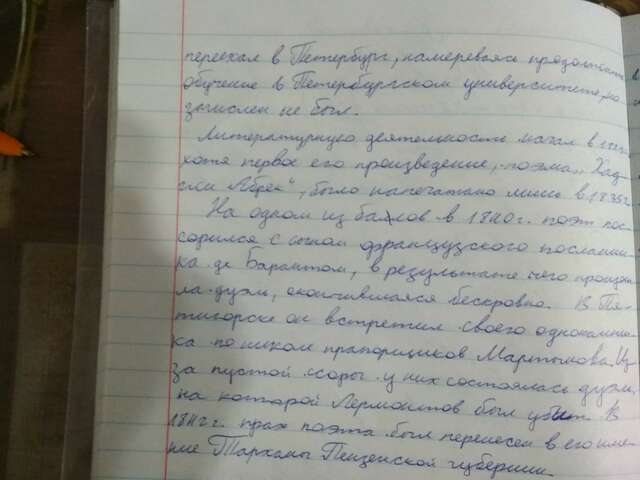 переехал в Петербург, намереваясь продолжить
обучение в Петербургском университете, но
зачислен не был.
Литературную деятельность начал в
хотя первое его произведение, поэма „Хад-
жи Абрек", было напечатано лишь в 1835г.
На одном из балов в 1840г. поэт пос-
сорился с сыном французского посланни-
ка де Барантом, в результате чего произош-
ла дуэль, окончившаяся бескровно. В Пя-
тигорске он встретил своего однокашни-
ка по школе прапорщиков Мартынова. Из-
за пустой ссоры у них состоялась дуэль,
на которой Лермонтов был убит. В
1842г. прах поэта был перенесен в его име-
ние Тарханы Пензенской губернии